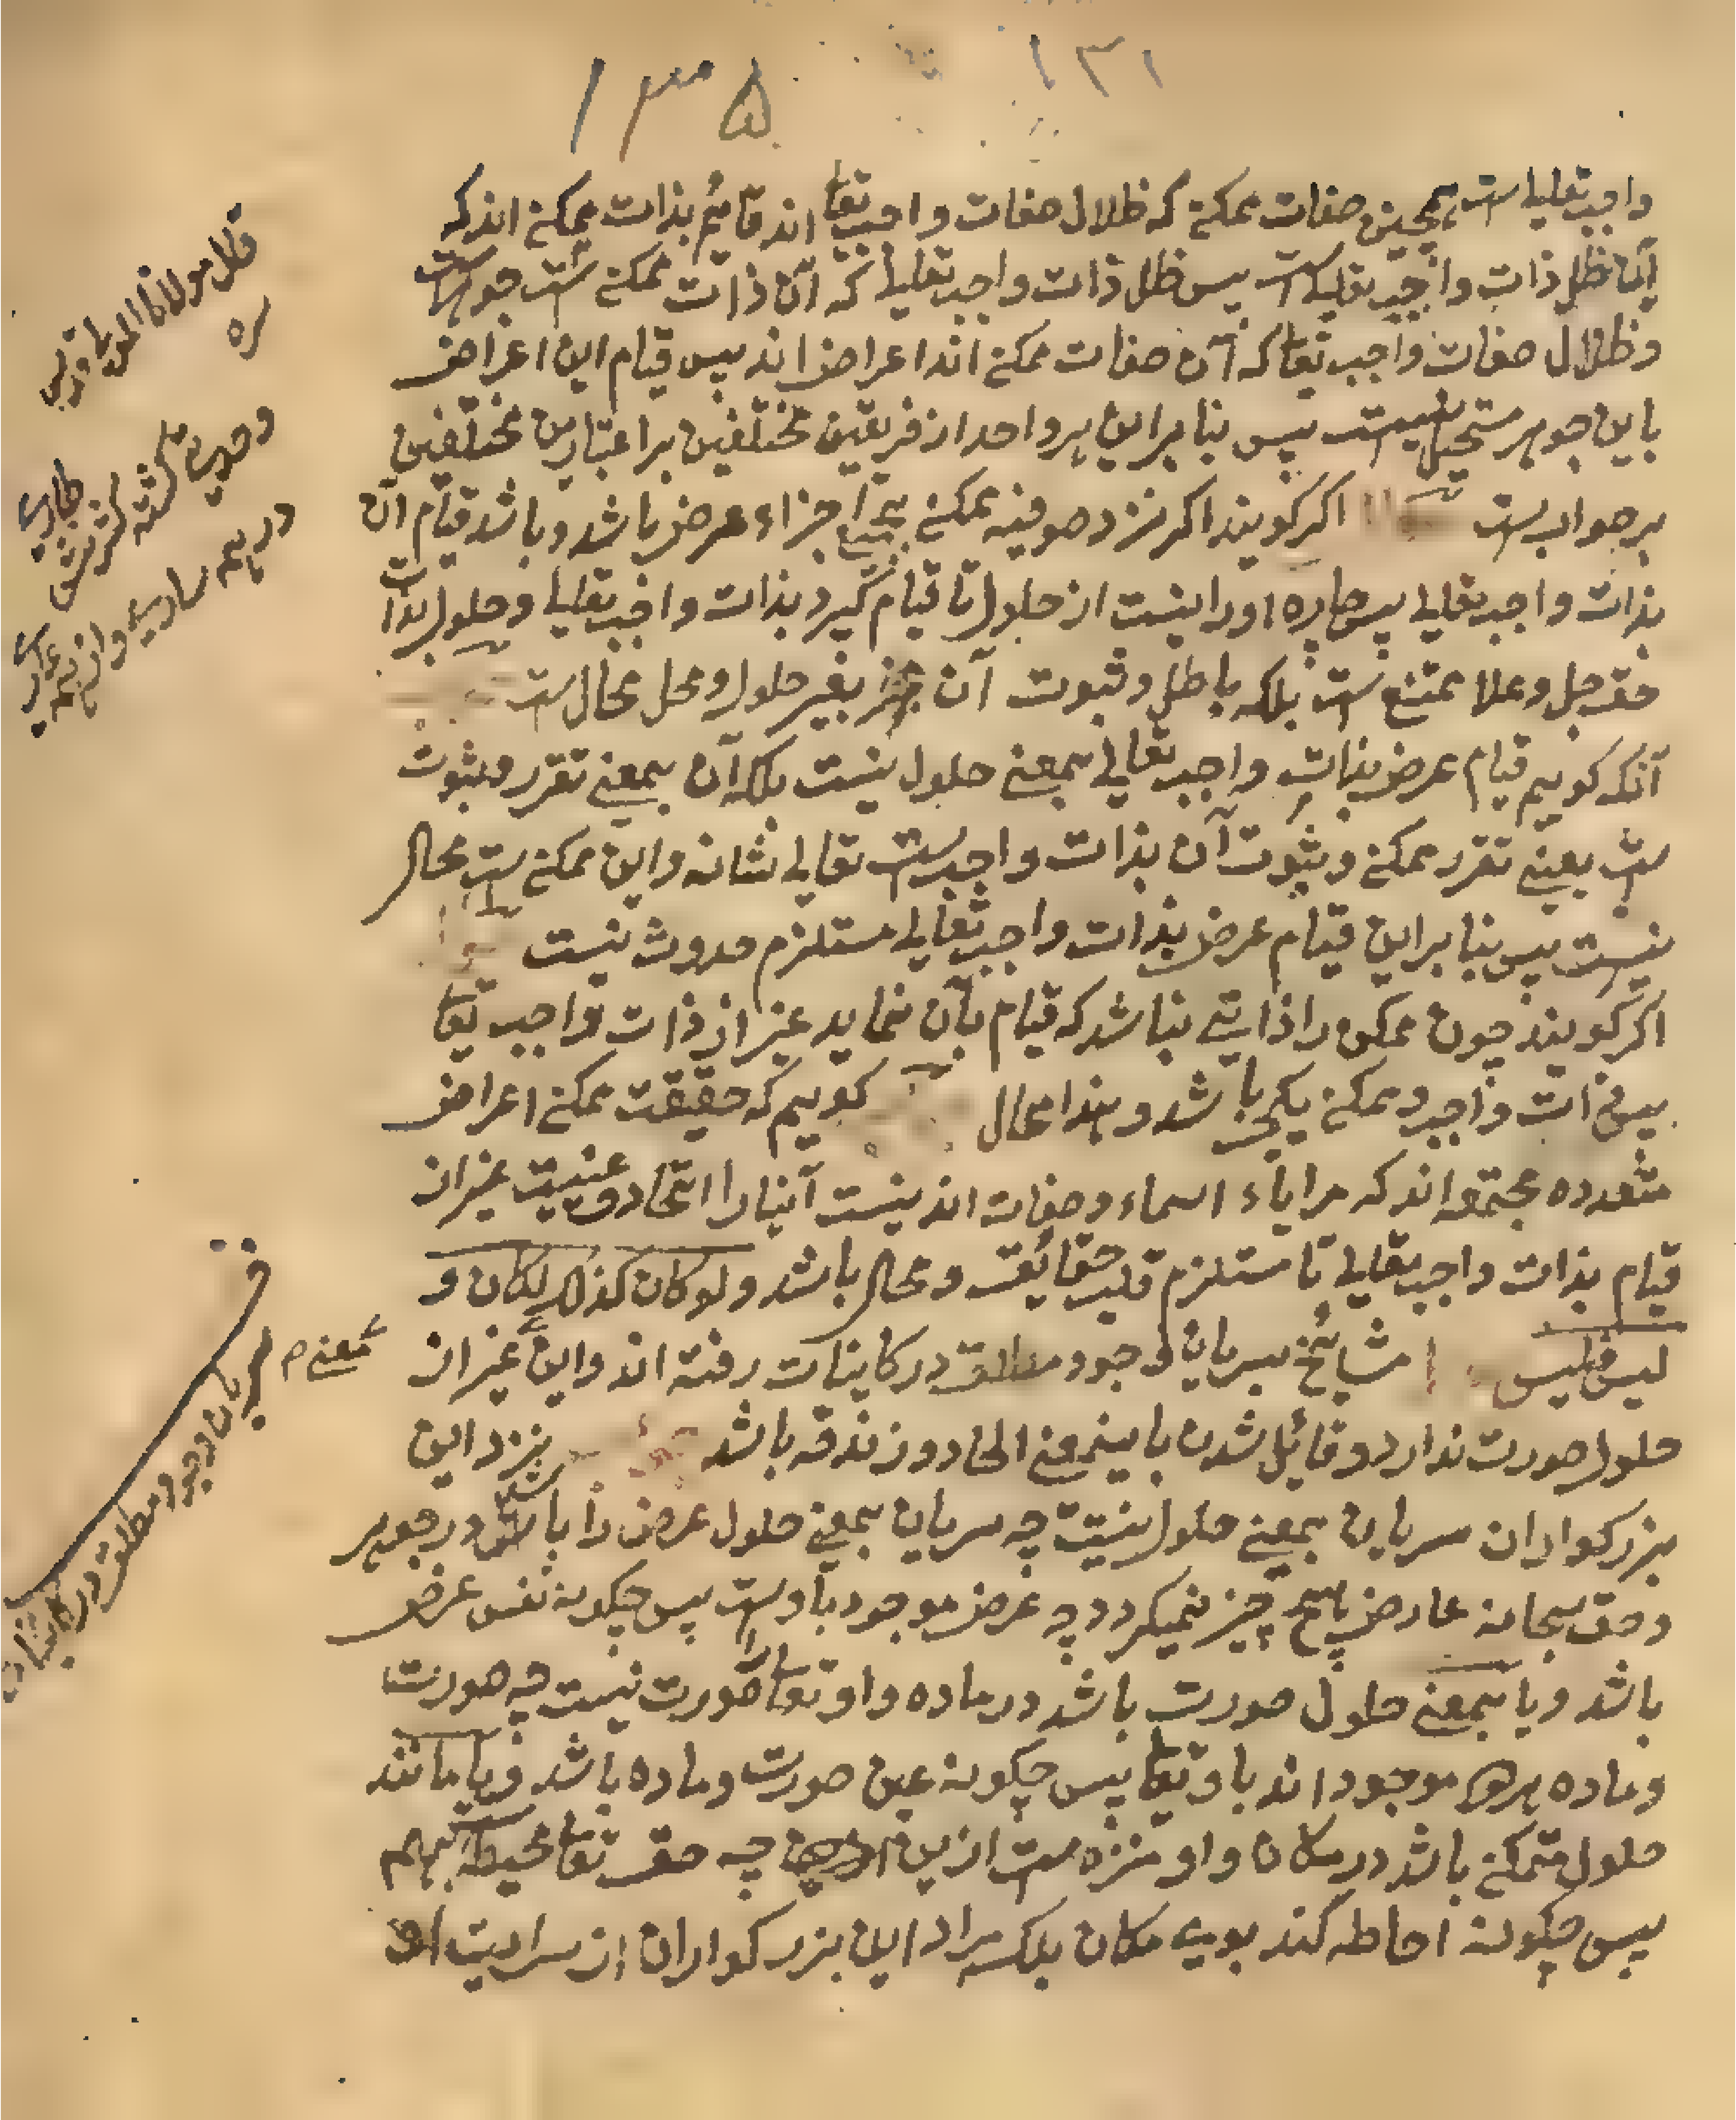 ۱۳۱
۱۳۵
واجب تعالی است همچنین صفات ممکنه که ظلال صفات واجب تعا اند قائم بذات ممکن اند که
آن ظل ذات واجب تعالی است پس ظل ذات واجب تعالی که آن ذات ممکنه است جوهر است
و ظلال صفات واجب تعا که آن صفات ممکنه اند اعراض اند پس قیام این اعراض
باین جوهر مستحیل نیست پس بنا براین هر واحد از فریقین مختلفین بر اعتبارین مختلفین
بر صواب ست اکر کویند اکر نزد صوفیه ممکن بجمیع اجزاء عرض باشد و باشد قیام آن
بذات واجب تعالی پس چاره اورا نیست از حلول تا قیام کیرد بذات واجب تعالی و حلول بذات
حق جل و علا ممتنع ست بلکه باطل و ثبوت آن بغیر حلول و محل محال ست
آنکه کوییم قیام عرض بذات واجب تعالی بمعنی حلول نیست بلکه آن بمعنی تقرر و ثبوت
ست یعنی تقرر ممکن و ثبوت آن بذات واجب ست تعالی شانه و این ممکن ست محال
نیست پس بنا براین قیام عرض بذات واجب تعالی مستلزم حدوث نیست
اکر کویند چون ممکن را ذاتی نباشد که قیام بآن نماید غیر از ذات واجب تعا
پس ذات واجب و ممکن یکی باشد و هذا محال کوییم که حقیقت ممکن اعراض
متعدده مجتمعه اند که مرایاء اسماء و صفات اند نیست آنها را اتحاد و عینیت غیر از
قیام بذات واجب تعالی تا مستلزم قلب حقائق و محال باشد ولو کان کذلک لکان و
لیس فلیس مشایخ بسریان وجود مطلق در کاینات رفته اند و این غیر از
حلول صورت ندارد و قائل شدن باینمعنی الحاد و زندقه باشد نزد این
بزرکواران سریان بمعنی حلول نیست چه سریان بمعنی حلول عرض را باشد در جوهر
و حق سبحانه عارض بهیچ چیز نمیکردد چه عرض موجود باوست پس چکونه نفس عرض
باشد و یا بمعنی حلول صورت باشد در ماده و او تعا صورت نیست چه صورت
و ماده هردو موجود اند باو تعا پس چکونه عین صورت و ماده باشد و یا مانند
حلول متمکن باشد در مکان و او منزه ست ازین چه حق تعا محیط بهم
پس چکونه احاطه کند بوی مکان بلکه مراد این بزرکواران از سرایت
قال مولانا
سره
در همه ساری و از همه عاری
ف
معنی
سریان وجود مطلق در کاینات